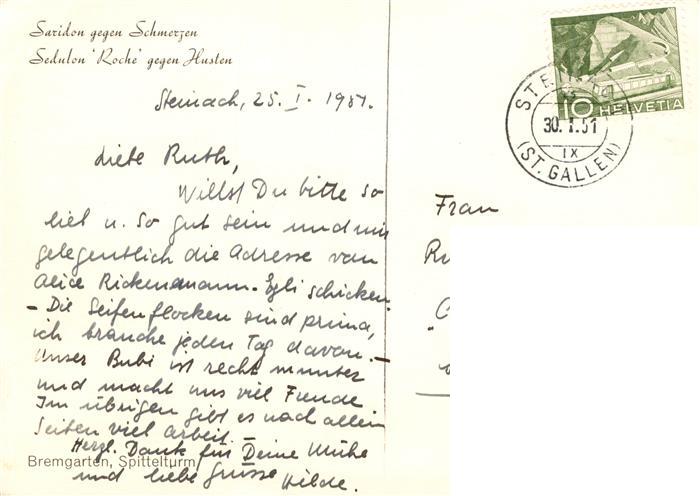 Saridon gegen Schmerzen
Sedulon 'Roche' gegen Husten
Steinach, 25. I. 1951.
Liebe Ruth,
Willst Du bitte so
lieb u. so gut sein und mir
gelegentlich die Adresse von
Alice Rickenmann-Egli schicken
- Die Seifenflocken sind prima,
ich brauche jeden Tag davon. -
Unser Bubi ist recht munter
und macht uns viel Freude
Im übrigen gibt es nach allen
Seiten viel Arbeit.
Herzl. Dank für Deine Mühe
und liebe Grüsse Hilde.
Bremgarten, Spittelturm
10 HELVETIA
30. I. 51
IX
(ST. GALLEN)
Frau